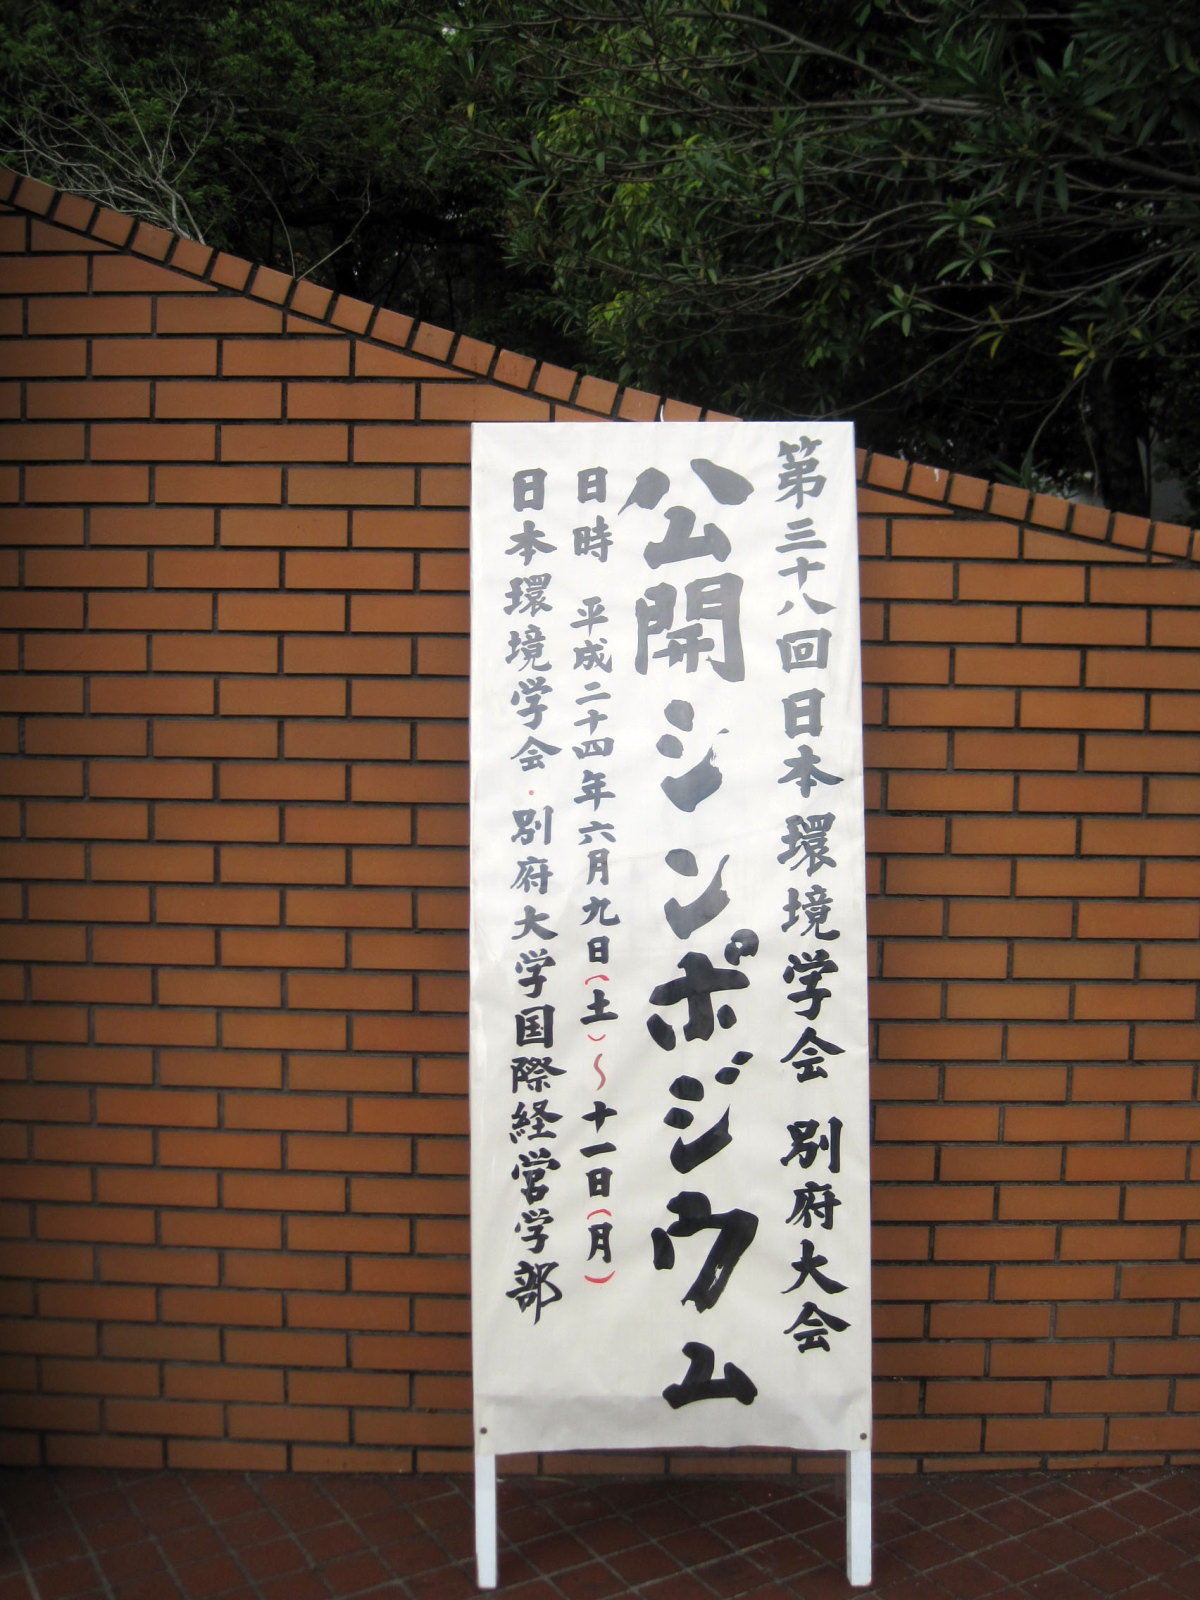 第三十八回日本環境学会 別府大会
公開シンポジウム
日時 平成二十四年六月九日(土)〜十一日(月)
日本環境学会・別府大学国際経営学部